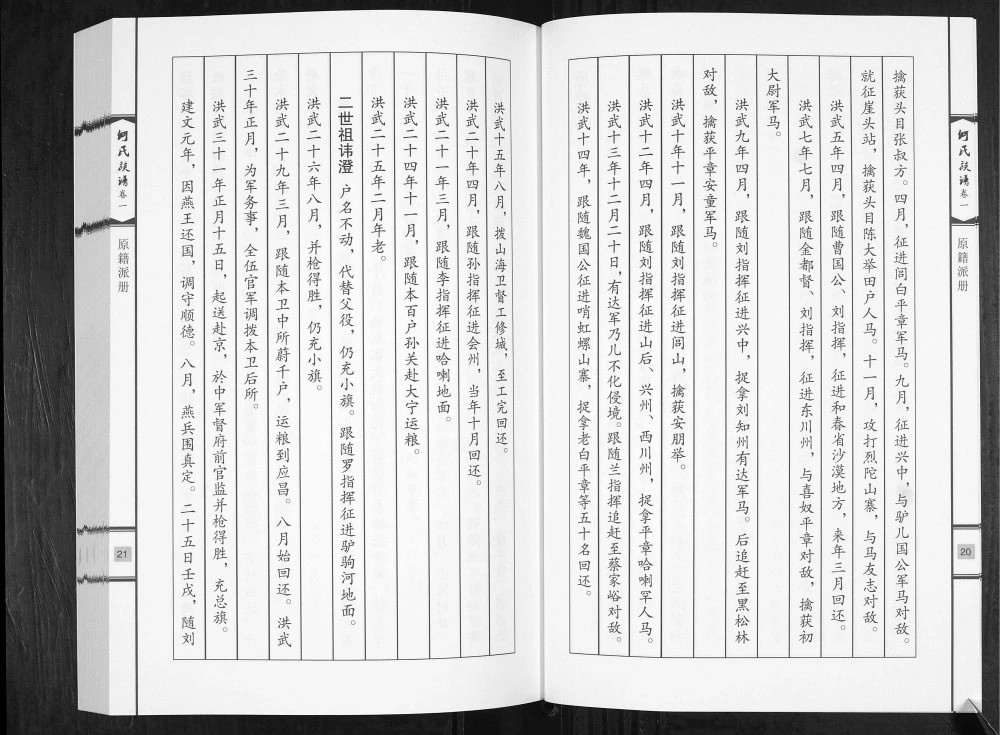 何氏族谱 卷一
原籍派册
20
擒获头目张叔方。四月，征进闾白平章军马。九月，征进兴中，与驴儿国公军马对敌。
就征崖头站，擒获头目陈大举田户人马。十一月，攻打烈陀山寨，与马友志对敌。
洪武五年四月，跟随曹国公、刘指挥，征进和春省沙漠地方，来年三月回还。
洪武七年七月，跟随金都督、刘指挥，征进东川州，与喜奴平章对敌，擒获初
大尉军马。
洪武九年四月，跟随刘指挥征进兴中，捉拿刘知州有达军马。后追赶至黑松林
对敌，擒获平章安童军马。
洪武十年十一月，跟随刘指挥征进闾山，擒获安朋举。
洪武十二年四月，跟随刘指挥征进山后、兴州、西川州，捉拿平章哈喇罕人马。
洪武十三年十二月二十日，有达军乃儿不化侵境。跟随兰指挥追赶至蔡家峪对敌。
洪武十四年，跟随魏国公征进哨虹螺山寨，捉拿老白平章等五十名回还。
洪武十五年八月，拨山海卫督工修城，至工完回还。
洪武二十年四月，跟随孙指挥征进会州，当年十月回还。
洪武二十一年三月，跟随李指挥征进哈喇地面。
洪武二十四年十一月，跟随本百户孙关赴大宁运粮。
洪武二十五年二月年老。
二世祖讳澄 户名不动，代替父役，仍充小旗。跟随罗指挥征进驴驹河地面。
洪武二十六年八月，并枪得胜，仍充小旗。
洪武二十九年三月，跟随本卫中所蔚千户，运粮到应昌。八月始回还。洪武
三十年正月，为军务事，全伍官军调拨本卫后所。
洪武三十一年正月十五日，起送赴京，於中军督府前官监并枪得胜，充总旗。
建文元年，因燕王还国，调守顺德。八月，燕兵围真定。二十五日壬戌，随刘
何氏族谱 卷一
原籍派册
21